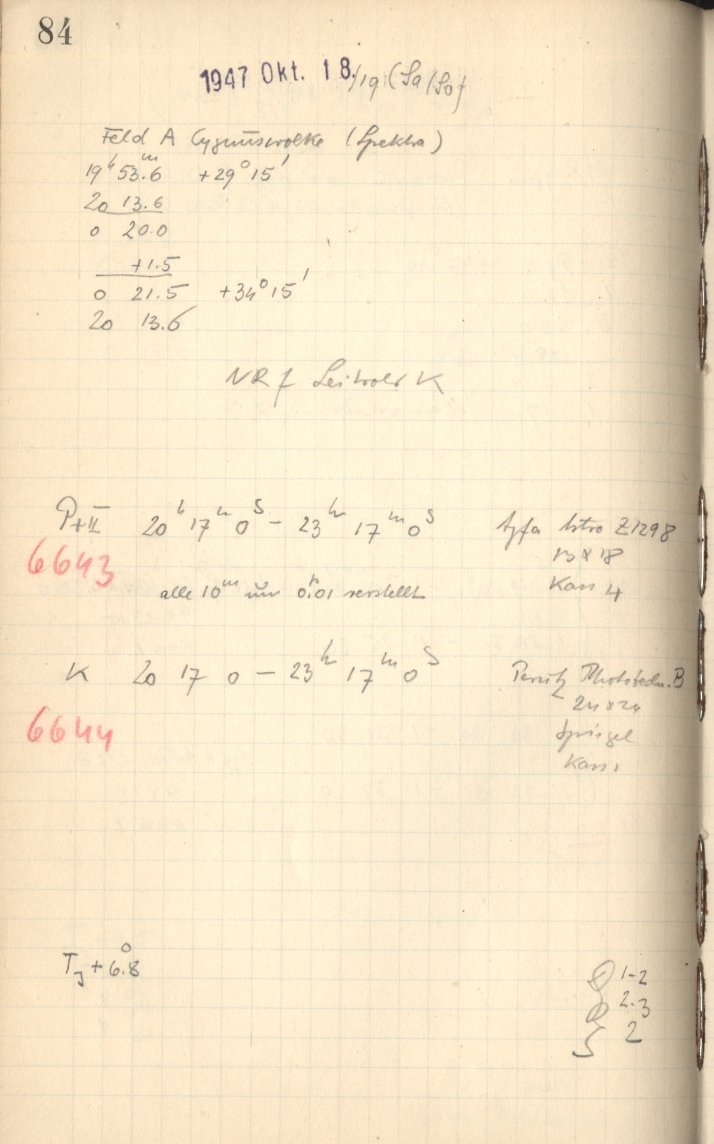 84
1947 Okt. 18./19 (Sa/So)
Feld A Cygnuswolke (Spektra)
19ʰ 53.6ᵐ +29° 15'
20 13.6
0 20.0
+1.5
0 21.5 +34° 15'
20 13.6
NR f K
P+II 20ʰ 17ᵐ 0ˢ – 23ʰ 17ᵐ 0ˢ Agfa Astro Z1298
6643
13 x 18
alle 10ᵐ um 0.01 verstellt Kass 4
K 20 17 0 – 23ʰ 17ᵐ 0ˢ Perutz B
24 x 24
6644
Spiegel
Kass 1
T +6.8°
1-2
2.3
2